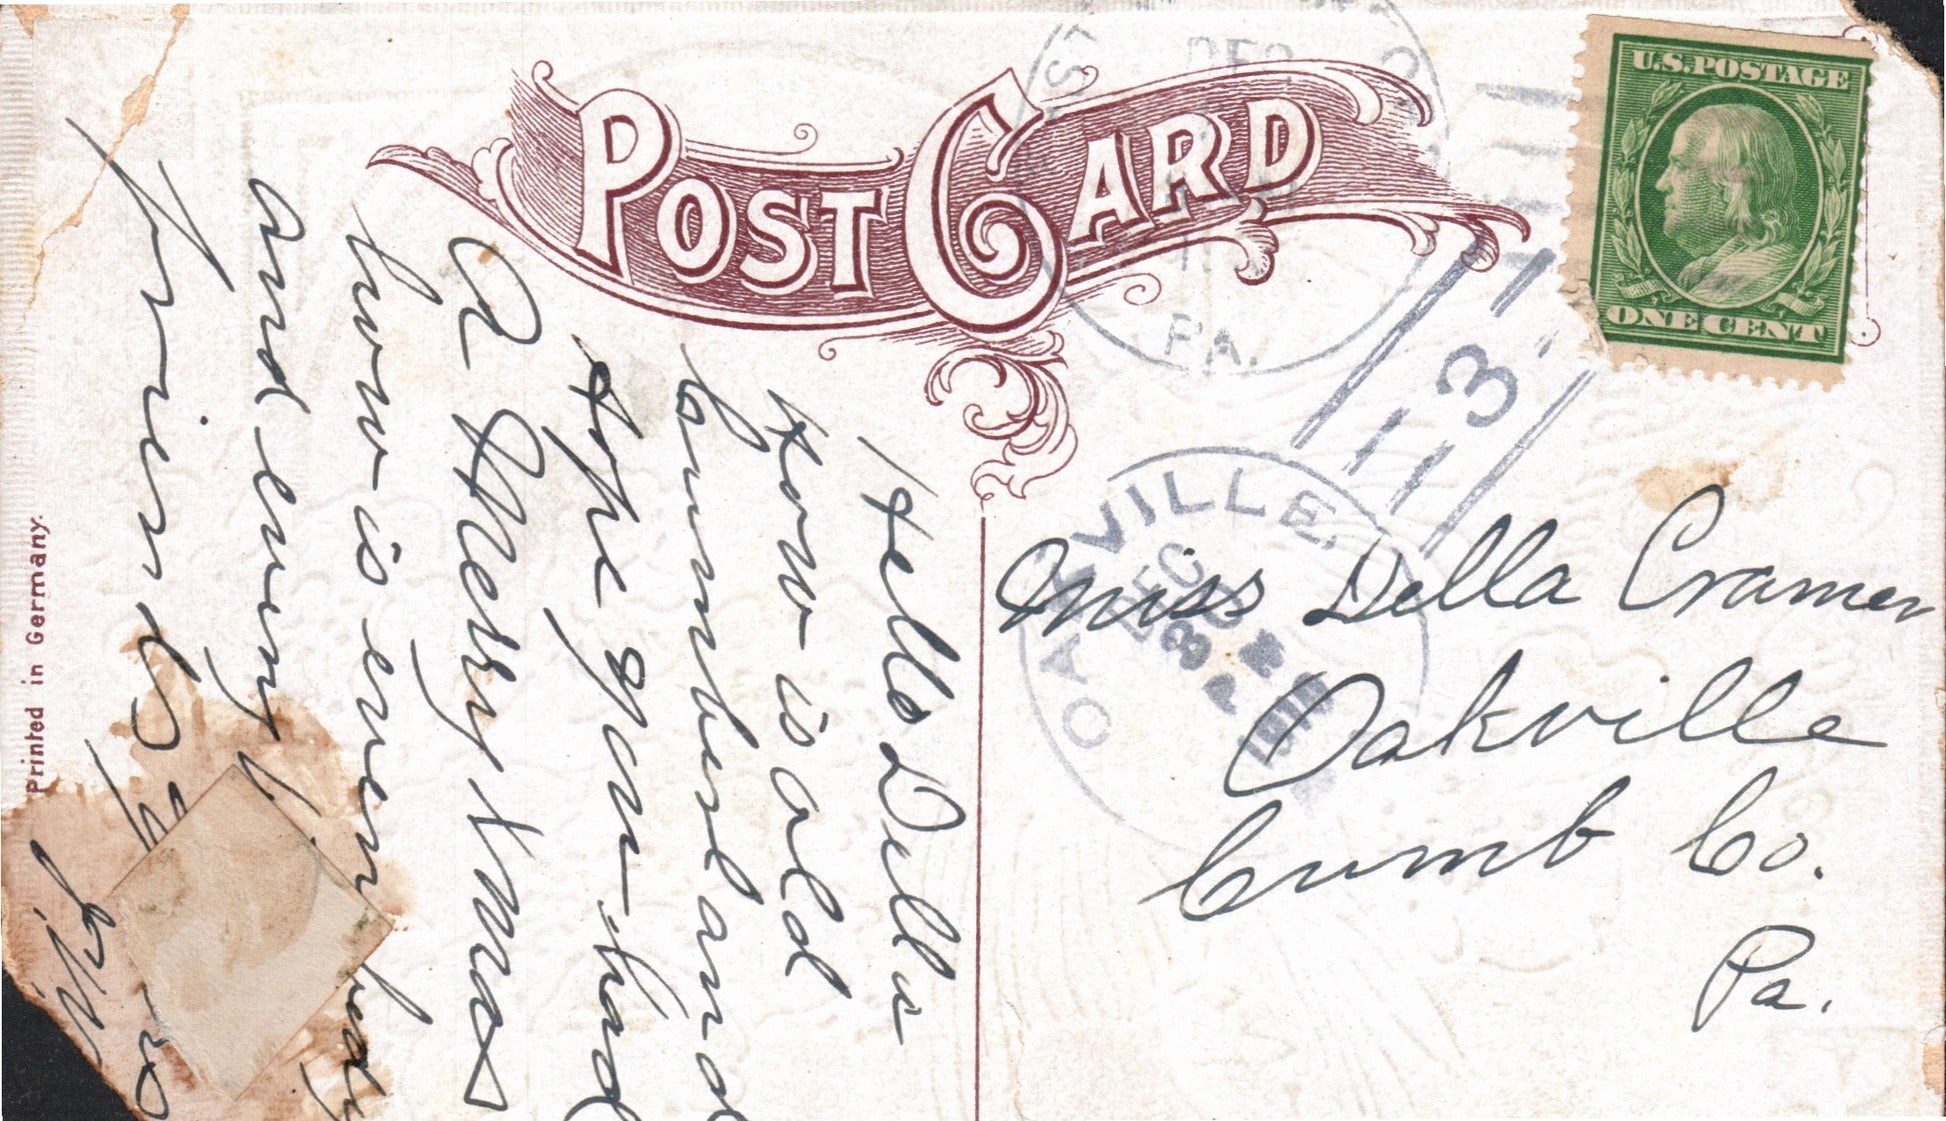 POST CARD
U.S. POSTAGE
ONE CENT
PA.
3
OAKVILLE.
DEC
30
P M
1910
Miss Della Cramer
Oakville
Cumb Co.
Pa.
Hello Della
How is old
Cumberland
hope you had
A Merry Xmas
how is even body
and every
friend
Printed in Germany.